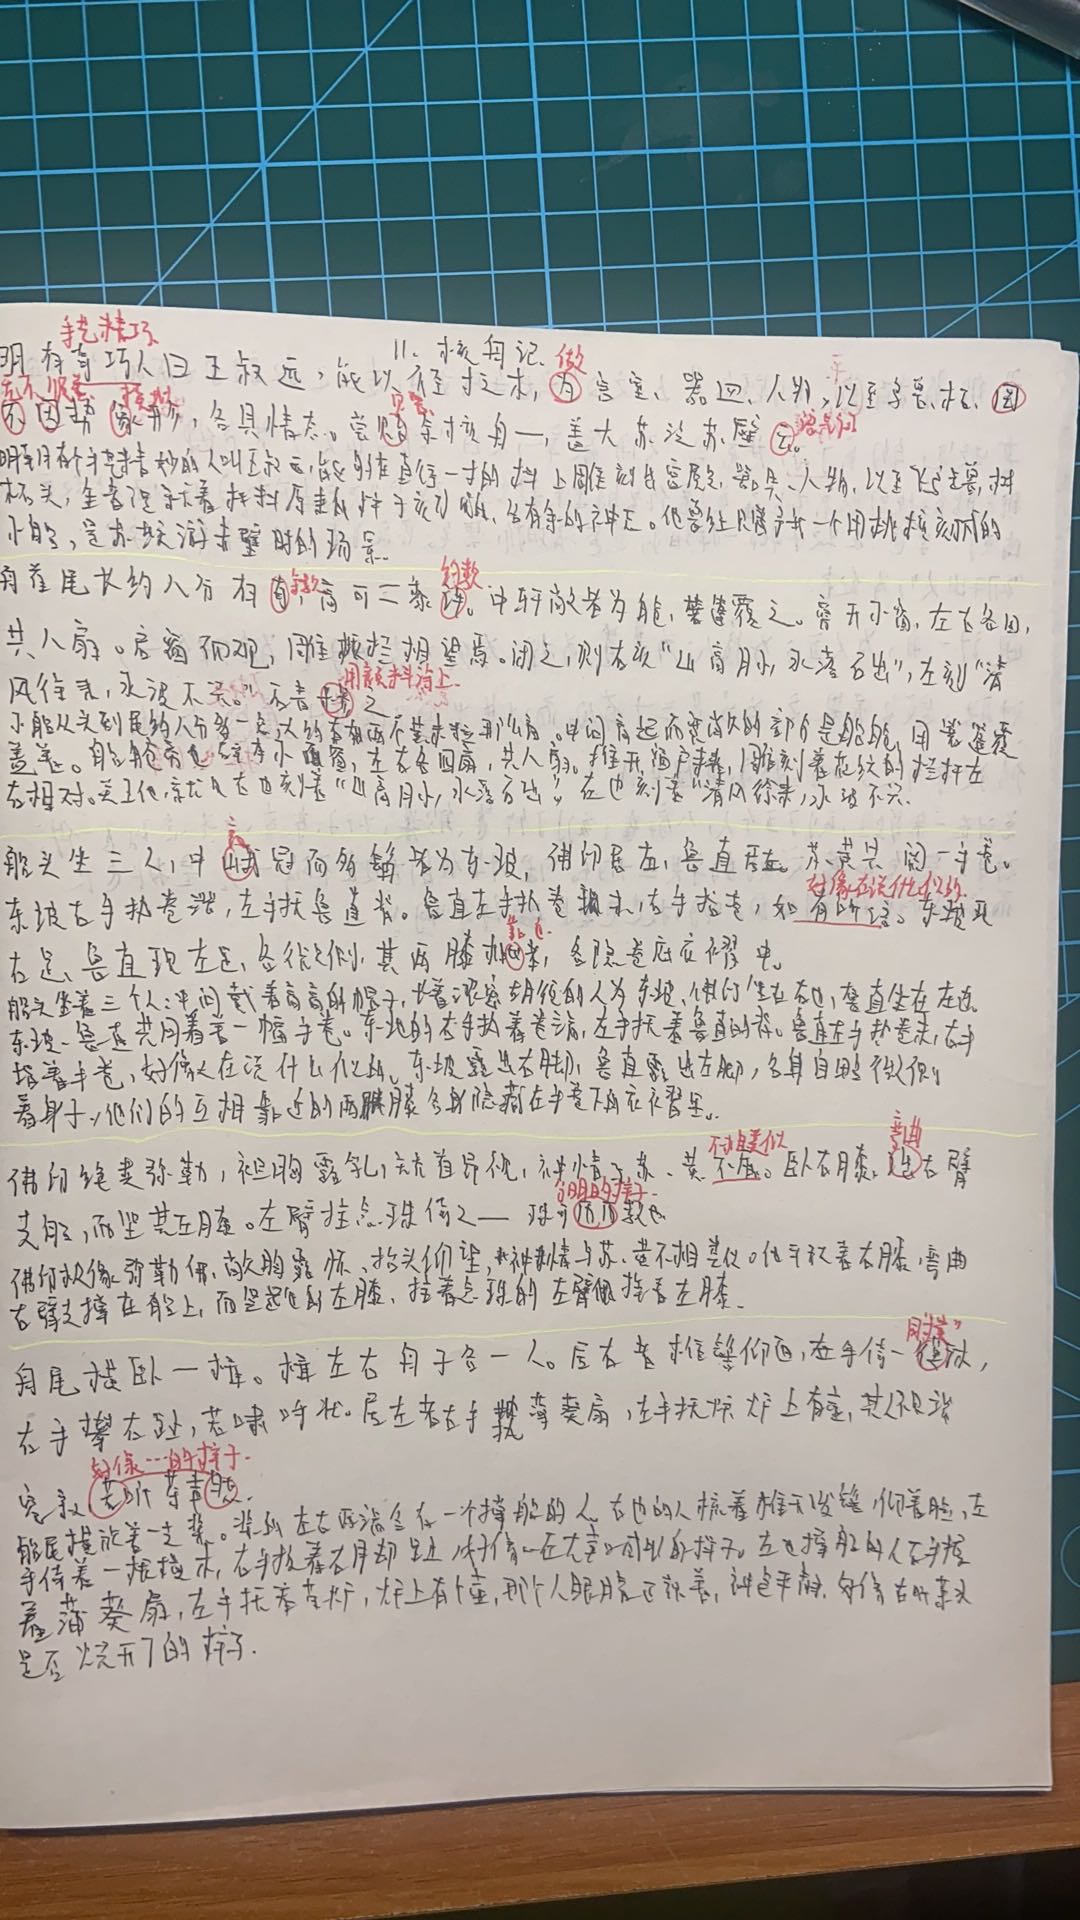 手艺精巧
11. 核舟记 做
明有奇巧人曰王叔远，能以径寸之木，为宫室、器皿、人物，以至鸟兽、木石，罔
不因势象形，各具情态。尝贻余核舟一，盖大苏泛赤壁云。
明朝有个手艺精妙的人叫王叔远，能够在直径一寸的木料上雕刻出宫殿、器具、人物，以至飞鸟走兽、树
木石头，全都是就着木料原来的样子刻
小船，是苏东坡游赤壁时的场景。
零数 约数
舟首尾长约八分有奇，高可二黍许。中轩敞者为舱，箬篷覆之。旁开小窗，左右各四，
共八扇。启窗而观，雕栏相望焉。闭之，则右刻“山高月小，水落石出”，左刻“清
用颜料涂上
风徐来，水波不兴。”石青糁之
小船从头到尾约八分多一点，大约有两个黄米粒那么高。中间高起而宽敞的部分是船舱，用箬篷覆
盖着。船舱旁边 小窗，左右各四扇，共八扇。推开窗户 雕刻着花纹的栏杆左
右相对。关上他，就见右边刻着“山高月小，水落石出”，左边刻着“清风徐来，水波不兴。
高
船头坐三人，中峨冠而多髯者为东坡，佛印居右，鲁直居左。苏、黄共阅一手卷。
好像在说什么似的
东坡右手执卷端，左手抚鲁直背。鲁直左手执卷末，右手指卷，如有所语。东坡现
靠近
右足，鲁直现左足，各微侧，其两膝相比者，各隐卷底衣褶中。
船头坐着三个人：中间戴着高高的帽子，长着浓密胡须的人为东坡，佛印坐在右边，鲁直坐在左边。
东坡、鲁直共同看着一幅手卷。东坡的右手执着卷端，左手抚着鲁直的背。鲁直左手执卷末，右手
指着手卷，好像在说什么似的。东坡露出右脚，鲁直露出左脚，各自略微侧
着身子，他们的互相靠近的两膝各自隐藏在手卷下的衣褶里。
不相类似 弯曲
佛印绝类弥勒，袒胸露乳，矫首昂视，神情与苏、黄不属。卧右膝，诎右臂
分明的样子
支船，而竖其左膝。左臂挂念珠倚之——珠可历历数也
佛印极像弥勒佛，敞胸露怀，抬头仰望，神情与苏、黄不相类似。他平放着右膝，弯曲
右臂支撑在船上，而竖起他的左膝，挂着念珠的左臂 左膝
舟尾横卧一楫。楫左右舟子各一人。居右者椎髻仰面，左手倚一衡木，
右手攀右趾，若啸呼状。居左者右手执蒲葵扇，左手抚炉，炉上有壶，其人视端
好像……的样子
容寂，若听茶声然。
船尾横放着一支桨。桨的左右两端各有一个撑船的人。右边的人梳着椎形发髻，仰着脸，左
手倚着一根横木，右手扳着右脚趾，好像在大声呼叫的样子。左边撑船的人右手握
着蒲葵扇，左手抚着茶炉，炉上有个壶，那个人眼睛正视着，神色平静，好像在听茶水
是否烧开了的样子.